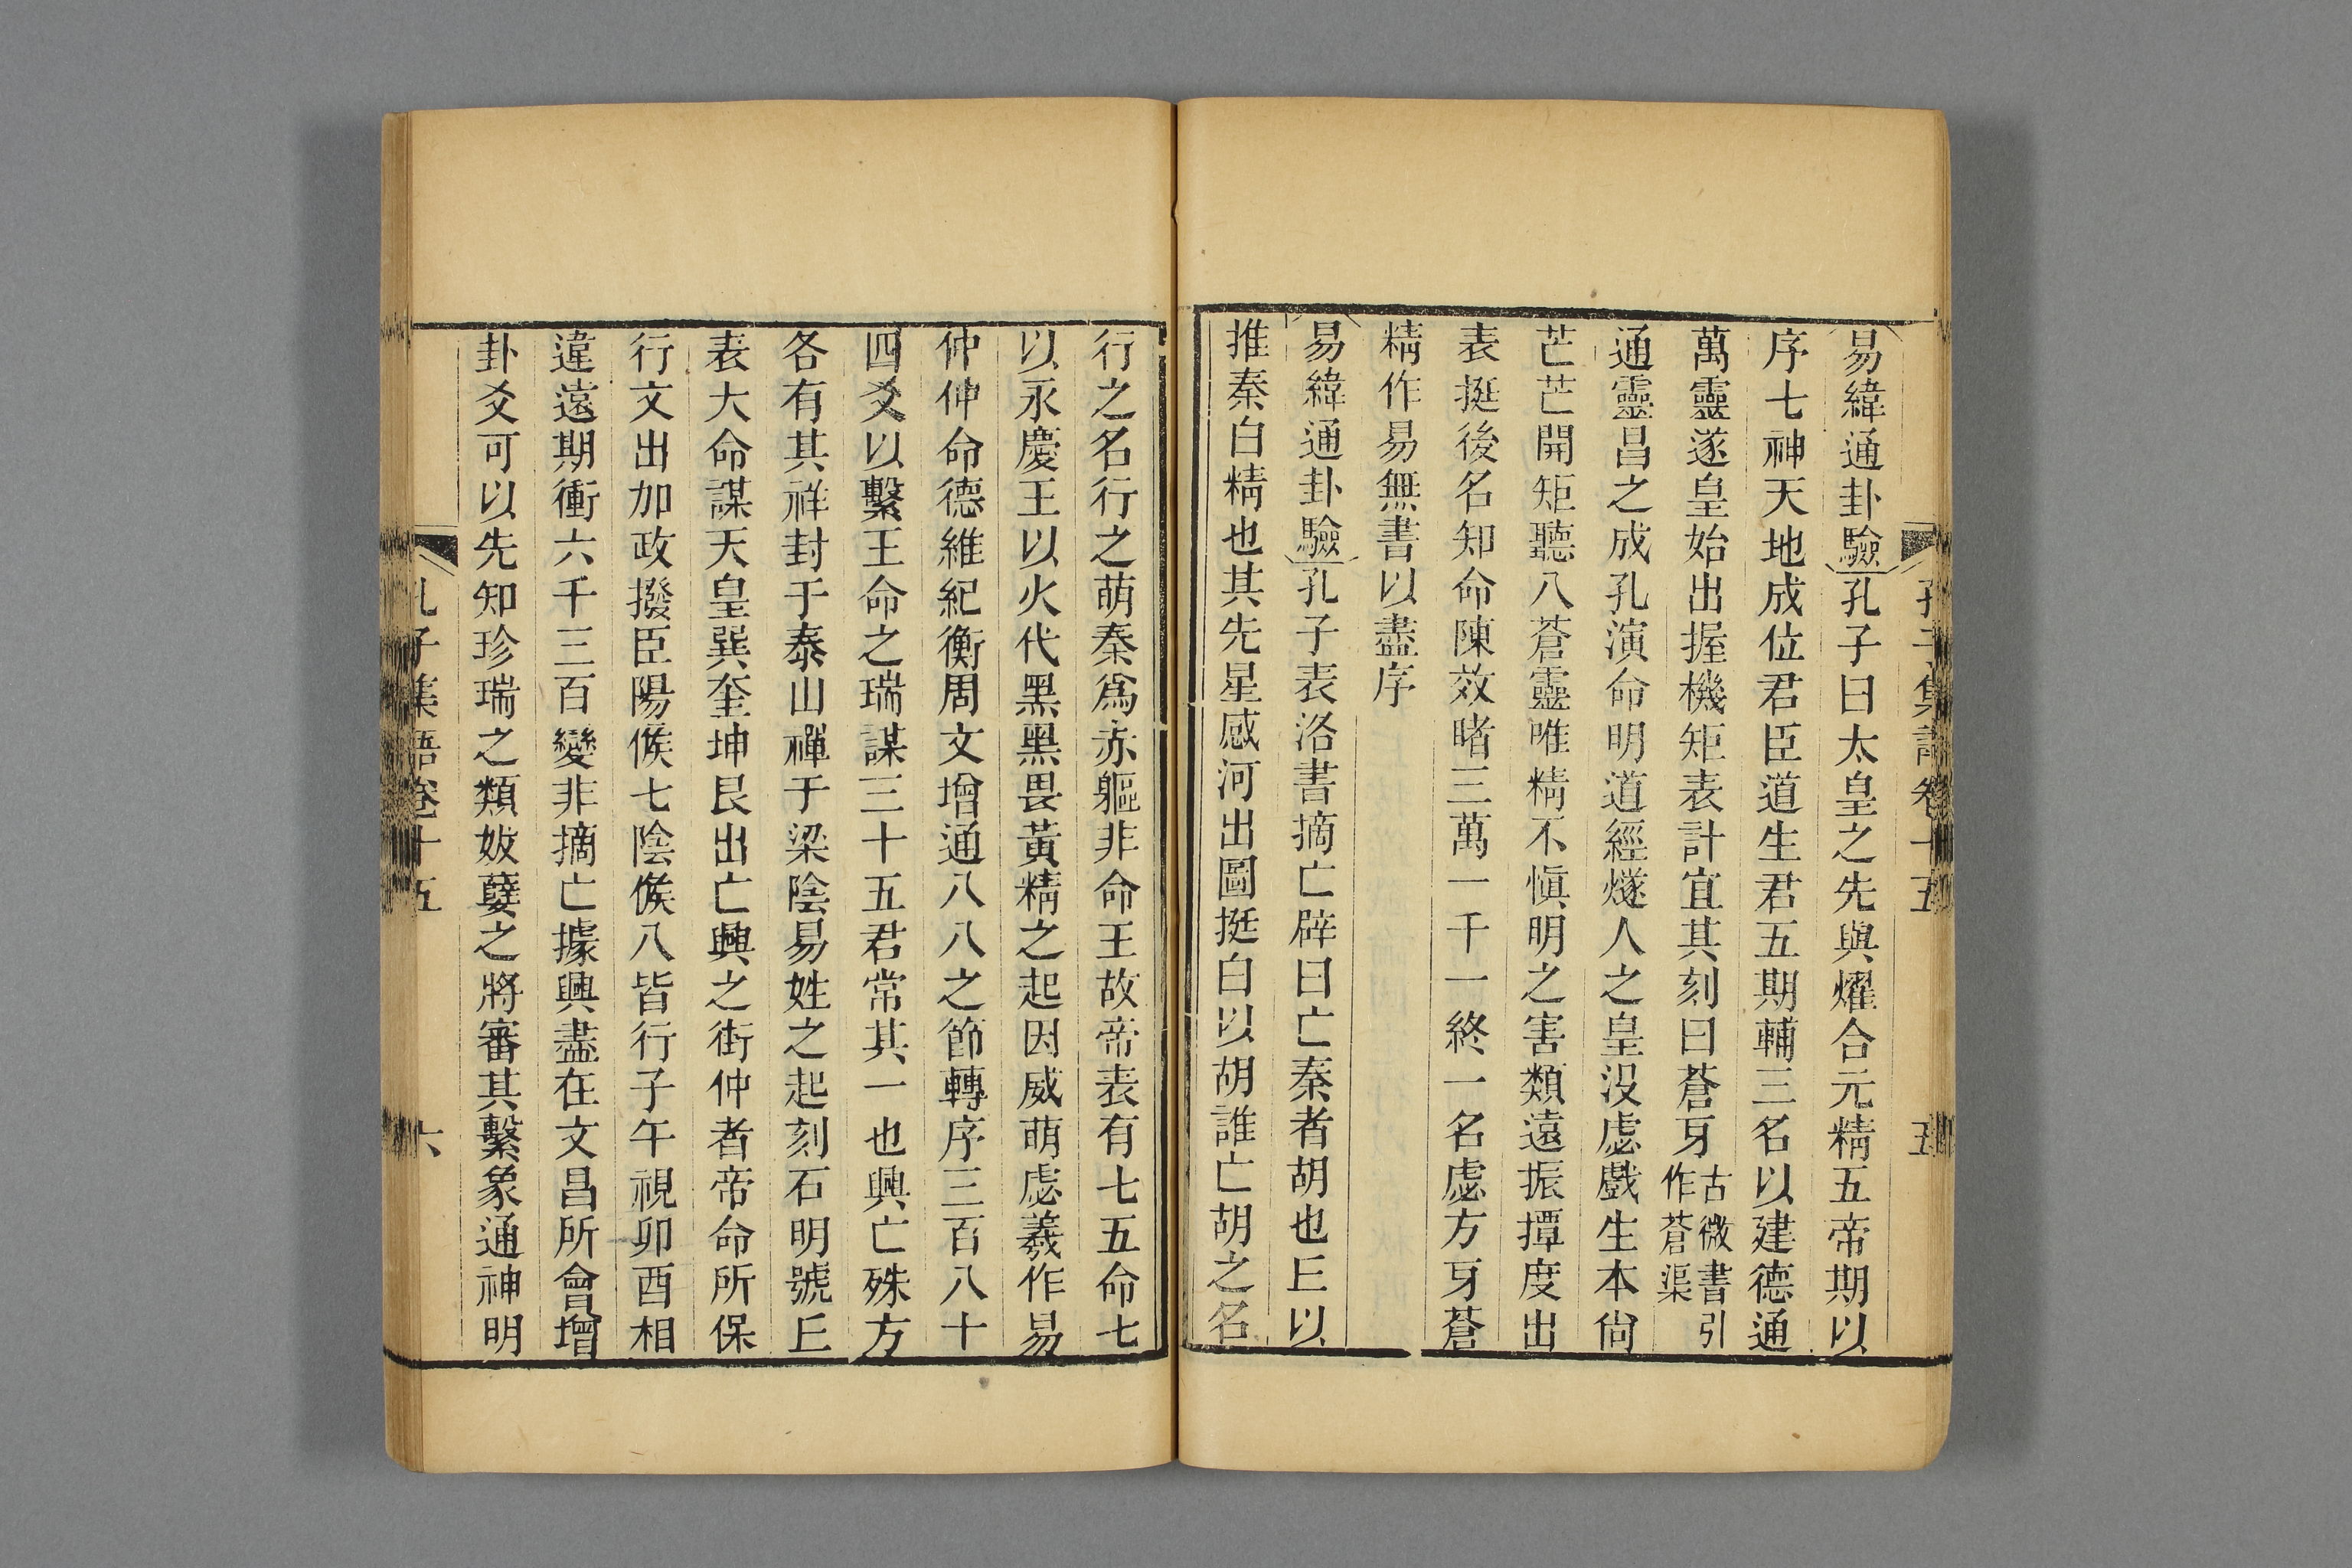 孔子集語卷十五 五
易緯通卦驗孔子曰太皇之先與燿合元精五帝期以
序七神天地成位君臣道生君五期輔三名以建德通
萬靈遂皇始出握機矩表計宜其刻曰蒼牙古微書引作蒼渠
通靈昌之成孔演命明道經燧人之皇沒虙戲生本尙
芒芒開矩聽八蒼靈唯精不愼明之害類遠振撢度出
表挺後名知命陳效睹三萬一千一終一名虙方牙蒼
精作易無書以盡序
易緯通卦驗孔子表洛書摘亡辟曰亡秦者胡也丘以
推秦白精也其先星感河出圖挺白以胡誰亡胡之名
行之名行之萌秦爲赤軀非命王故帝表有七五命七
以永慶王以火代黑黑畏黃精之起因威萌虙羲作易
仲仲命德維紀衡周文增通八八之節轉序三百八十
四爻以繫王命之瑞謀三十五君常其一也興亡殊方
各有其祥封于泰山禪于梁陰易姓之起刻石明號丘
表大命謀天皇巽奎坤艮出亡興之街仲者帝命所保
行文出加政撥臣陽候七陰候八皆行子午視卯酉相
違遠期衝六千三百變非摘亡據興盡在文昌所會增
卦爻可以先知珍瑞之類妭孽之將審其繫象通神明
孔子集語卷十五 六